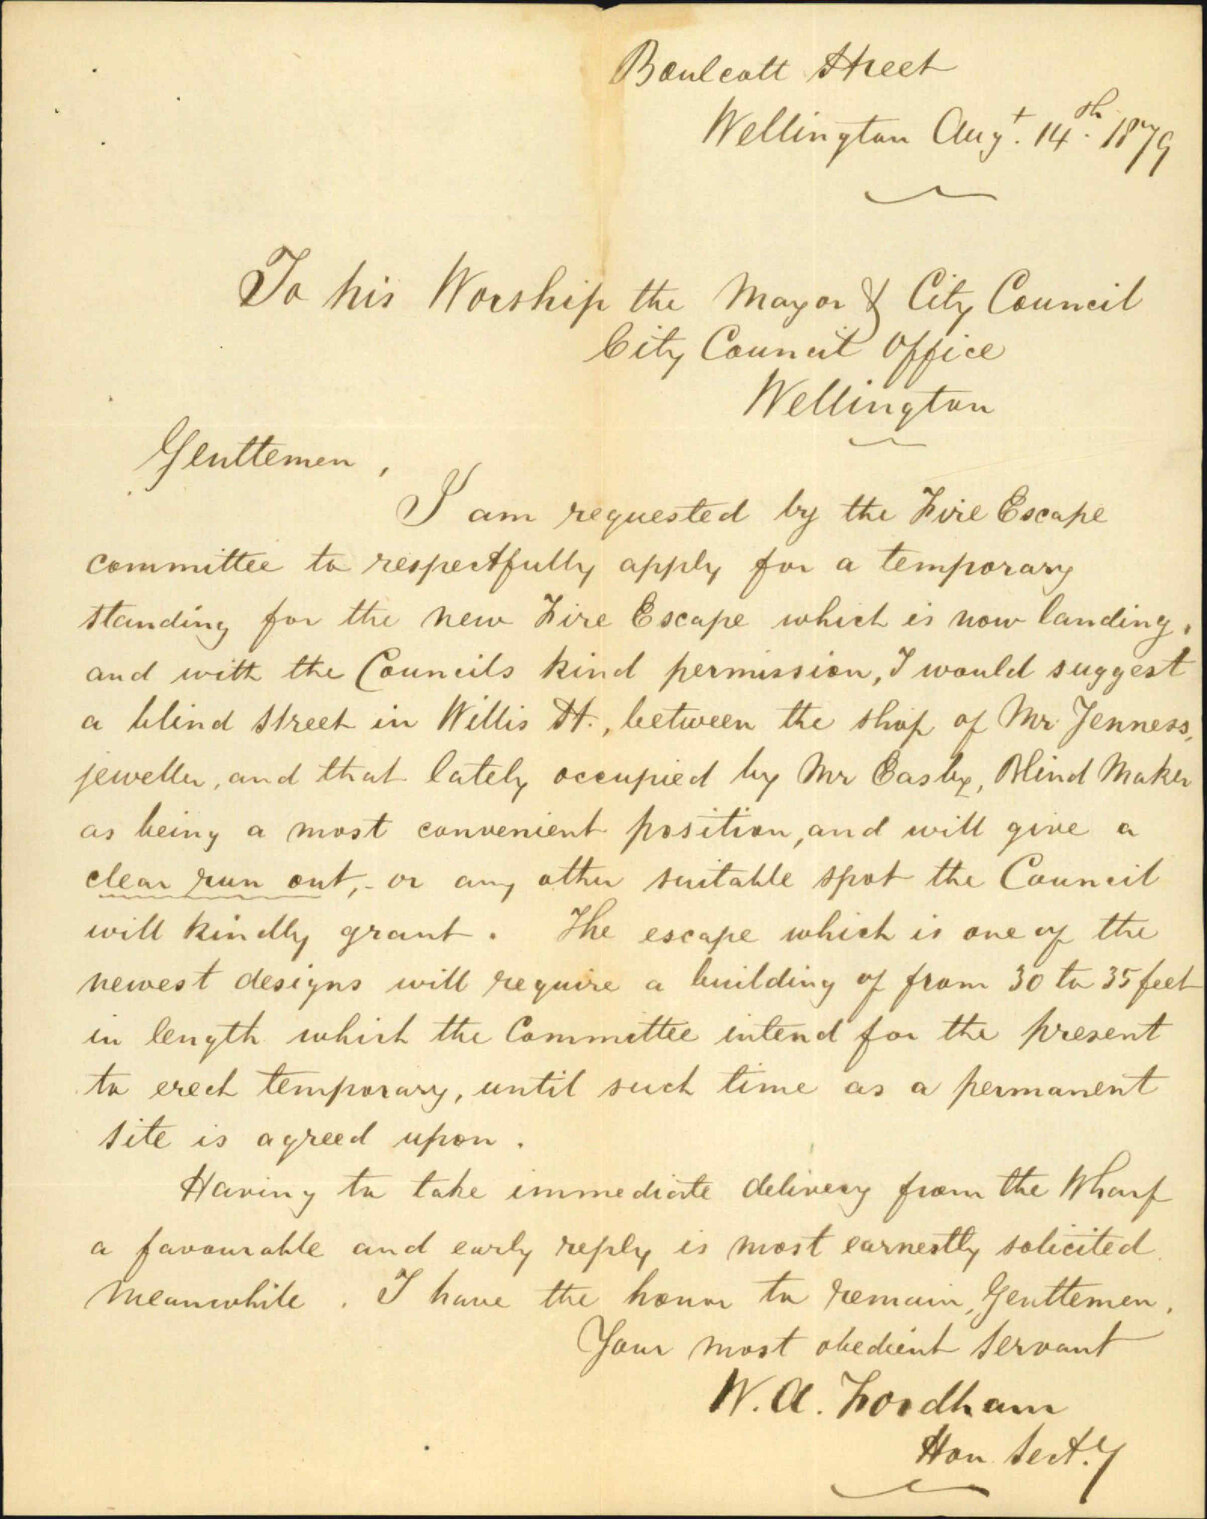 Boulcott Street
Wellington Augt. 14th. 1879
To his Worship the Mayor & City Council
City Council Office
Wellington
Gentlemen,
I am requested by the Fire Escape
committee to respectfully apply for a temporary
standing for the new Fire Escape which is now landing,
and with the Councils kind permission, I would suggest
a blind street in Willis St., between the shop of Mr Jenness,
jeweller, and that lately occupied by Mr Easby, Blind Maker
as being a most convenient position, and will give a
clear run out, - or any other suitable spot the Council
will kindly grant. The escape which is one of the
newest designs will require a building of from 30 to 35 feet
in length which the Committee intend for the present
to erect temporary, until such time as a permanent
site is agreed upon.
Having to take immediate delivery from the Wharf
a favourable and early reply is most earnestly solicited
meanwhile. I have the honor to remain, Gentlemen,
Your most obedient servant
W. A. Fordham
Hon Sect.y